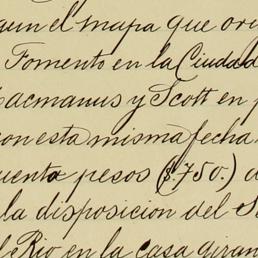 gun el mapa que ori
Fomento en la Ciudad
Macmanus y Scott en p
con esta misma fecha
cuenta pesos ($750.-) a
la disposicion del S
el Rio en la casa giran